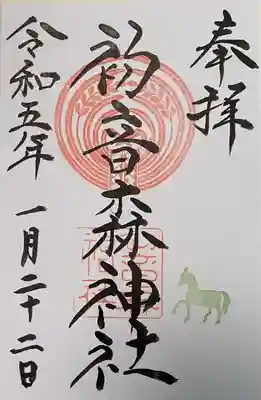 奉拝
初音森神社
令和五年 一月二十二日